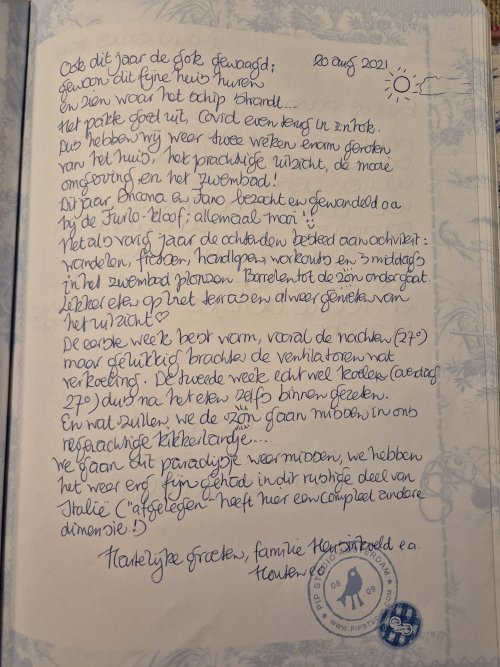 Ook dit jaar de gok gewaagd; 20 aug 2021
gewoon dit fijne huis huren
en zien waar het schip strandt...
Het pakte goed uit, Covid even terug in z'n hok.
Dus hebben wij weer twee weken enorm genoten
van het huis, het prachtige uitzicht, de mooie
omgeving en het zwembad!
Dit jaar Ancona en Fano bezocht en gewandeld o.a
bij de Furlo-kloof; allemaal mooi!
Net als vorig jaar de ochtenden besteed aan activiteit:
wandelen, fietsen, hardlopen, workouts en 's middags
in het zwembad plonzen. Borrelen tot de zon ondergaat.
Lekker eten op het terras en alweer genieten van
het uitzicht ♡
De eerste week best warm, vooral de nachten (27°)
maar gelukkig brachten de ventilatoren wat
verkoeling. De tweede week echt wel koeler (overdag
27°) dus na het eten zelfs binnen gezeten.
En wat zullen we de zon gaan missen in ons
regenachtige kikkerlandje....
We gaan dit paradijsje weer missen, we hebben
het weer erg fijn gehad in dit rustige deel van
Italië ("afgelegen" heeft hier een compleet andere
dimensie!)
Hartelijke groeten, familie e.a.
Houten
PIP STUDIO AMSTERDAM
08 09
WWW.PIPSTUDIO.COM